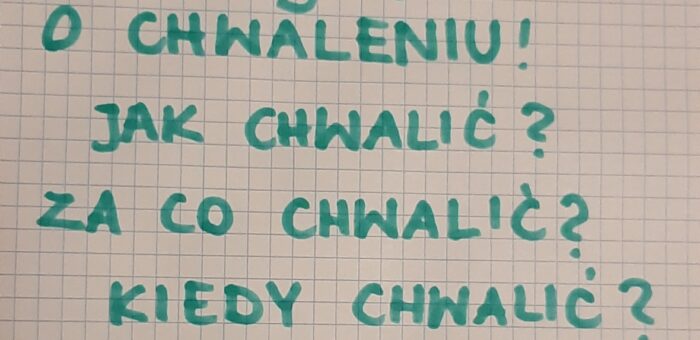 O CHWALENIU!
JAK CHWALIĆ?
ZA CO CHWALIĆ?
KIEDY CHWALIĆ?